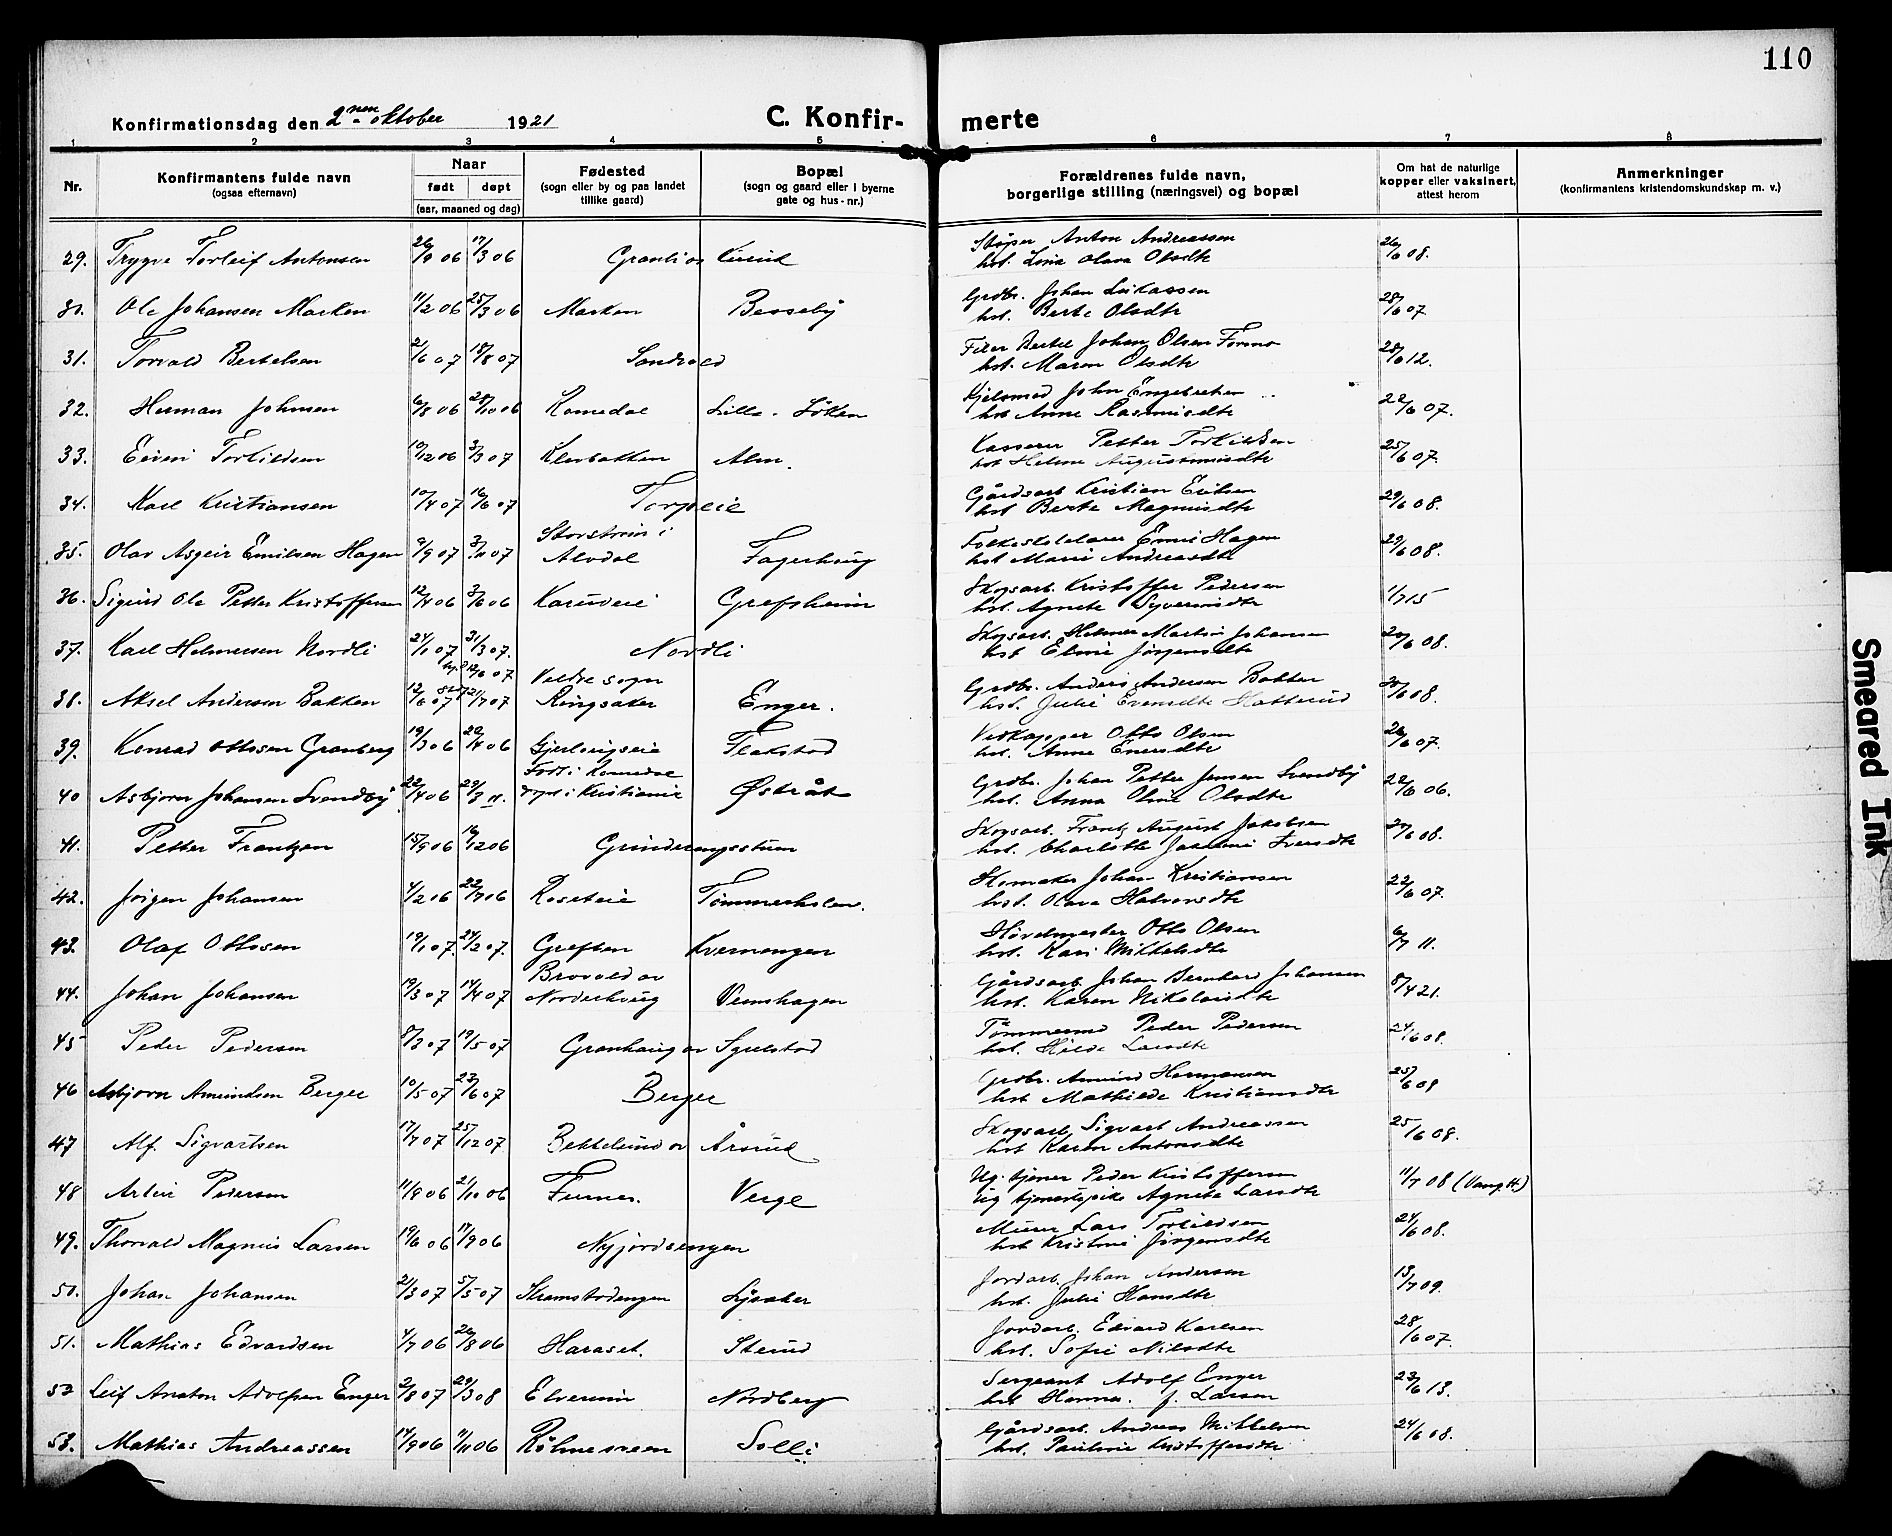 110
Konfirmationsdag den 2nen oktober 1921
C. Konfirmerte
1 2 3 4 5 6 7 8
Nr.
Konfirmantens fulde navn
(ogsaa efternavn)
Naar
født døpt
(aar, maaned og dag)
Fødested
(sogn eller by og paa landet
tillike gaard)
Bopæl
(sogn og gaard eller i byerne
gate og hus-nr.)
Forældrenes fulde navn,
borgerlige stilling (næringsvei) og bopæl
Om hat de naturlige
kopper eller vaksinert,
attest herom
Anmerkninger
(konfirmantens kristendomskundskap m. v.)
29. Trygve Torleif Antonsen 26/9 06 17/3 06 Støper Anton Andreassen 26/6 08.
hst. Olava Olsdtr
30. Ole Johansen Marken 11/2 06 25/3 06 Marken Besseby Grdbr. Johan Lukassen 28/6 07
hst. Berte Olsdtr
31. Torvald Bertelsen 21/6 07 18/8 07 Sandvold Bertel Johan Olsen Formo 28/6 12.
hst. Maren Olsdtr
32. Herman Johnsen 6/8 06 28/10 06 Romedal Lille-Løken Hjelpmand John Engebretsen 22/6 07.
hst Anne Rasmusdtr
33. Torkildsen 10/12 06 3/3 07 Klevbakken Alm. Kasserer Petter Torkildsen 25/6 07.
hst Helene Augustinusdtr
34. Karl Kristiansen 10/4 07 16/6 07 Torpeie Gårdsarb Kristian Eriksen 29/6 08.
hst Berte Magnusdtr
35. Olav Asgeir Emilsen Hagen 9/9 07 3/11 07 Alvdal Fagerhaug Folkeskolelærer Emil Hagen 29/6 08.
hst Marie Andreasdtr
36. Sigurd Ole Petter Kristoffersen 12/4 06 3/6 06 Karudeie Grefsheim Skogsarb. Kristoffer Pedersen 1/7 15
hst. Agnete Syverinsdtr
37. Karl Helmersen Nordli 24/1 07 31/3 07. Nordli Skogsarb. Helmer Martin Johansen 20/6 08.
hst Eline Jørgensdtr
38. Aksel Andersen Bakken 12/6 07 21/7 07 Veldre sogn
Ringsaker Enger. Grdbr. Anders Andersen Bakken 30/6 08.
hst. Julie Evensdtr Hatterud
39. Konrad Ottosen Granberg 19/3 06 22/4 06 Gjerlaugseie Flakstad Vedkapper Otto Olsen 26/6 07.
hst. Anne Enersdtr
40 Asbjørn Johansen Svendby 22/4 06 29/3 11. Født i Romedal
døpt i Kristiania Østråt Grdbr. Johan Petter Jensen Svendby 22/6 06.
hst. Anna Oline Olsdtr
41. Petter Frantzen 15/9 06 16/12 06 Grinderengsstuen Skogsarb. Frantz August Jakobsen 27/6 08.
hst. Charlotte Iversdtr
42. Jørgen Johansen 4/2 06 22/7 06 Roseteie Tømmerholen. Skomaker Johan Kristiansen 22/6 07.
hst. Olava Halvorsdtr
43. Olaf Ottosen 19/1 07. 24/2 07. Greften Kvernengen Høvelmester Otto Olsen 6/7 11.
hst. Kari Mikkelsdtr
44. Johan Johansen 19/3 07 14/4 07 Brovold av
Norderhaug Vemshagen Gårdsarb. Johan Bernhard Johansen 8/4 21.
hst. Karen Nikolaisdtr
45 Peder Pedersen 8/3 07 19/5 07 Granhaug av Sælstad Tømmermd Peder Pedersen 24/6 08.
hst. Hilda Larsdtr
46 Asbjørn Amundsen Berger 10/5 07 23/6 07 Berger Grdbr. Amund Hermansen 25/6 09
hst Mathilde Kristiansdtr
47 Alf Sigvartsen 17/7 07 25/12 07 Bekkelund av Årsrud Skogsarb. Sigvart Andreassen 25/6 08.
hst Karen Antonsdtr
48 Pedersen 11/8 06 21/10 06 Furnes. Verge Ug. tjener Peder Kristoffersen 11/7 08 (Vang H.)
ug tjenestepike Agnete Larsdtr
49. Thorvald Magnus Larsen 19/6 06 17/9 06 Nyjordsengen Murer Lars Torkildsen 24/6 08.
hst Kristine Jørgensdtr
50. Johan Johansen 21/3 07 5/5 07 Skramstadengen Lysaker Jordarb. Johan Andersen 13/7 09.
hst. Julie Hansdtr
51. Mathias Edvardsen 4/7 06 26/8 06 Haraset. Sterud Jordarb. Edvard Karlsen 28/6 07.
hst. Sofie Nilsdtr
52 Leif Anston Adolfsen Enger 2/8 07 29/3 08 Elverum Nordberg Sergeant Adolf Enger 23/6 13.
hst Hanna. f. Larsen
53. Mathias Andreassen 14/9 06 11/11 06 Rølnesveen Solli Gårdsarb. Andreas Mikkelsen 24/6 08.
hst. Pauline Kristoffersdtr
Smeared Ink